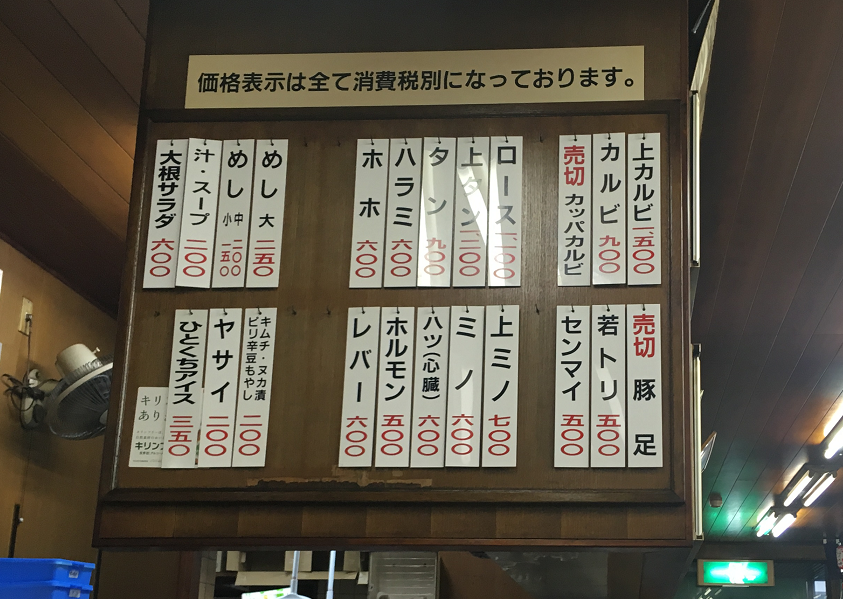 価格表示は全て消費税別になっております。
上カルビ 一、五〇〇
カルビ 九〇〇
売切 カッパカルビ
ロース 一、一〇〇
上タン 一、二〇〇
タン 九〇〇
ハラミ 六〇〇
ホホ 六〇〇
めし 大 二五〇
めし 中 二〇〇 小 一五〇
汁・スープ 二〇〇
大根サラダ 六〇〇
売切 豚足
若トリ 五〇〇
センマイ 五〇〇
上ミノ 七〇〇
ミノ 六〇〇
ハツ(心臓) 六〇〇
ホルモン 五〇〇
レバー 六〇〇
キムチ・ヌカ漬 ピリ辛豆もやし 二〇〇
ヤサイ 二〇〇
ひとくちアイス 三五〇
キリ
あり
キリン